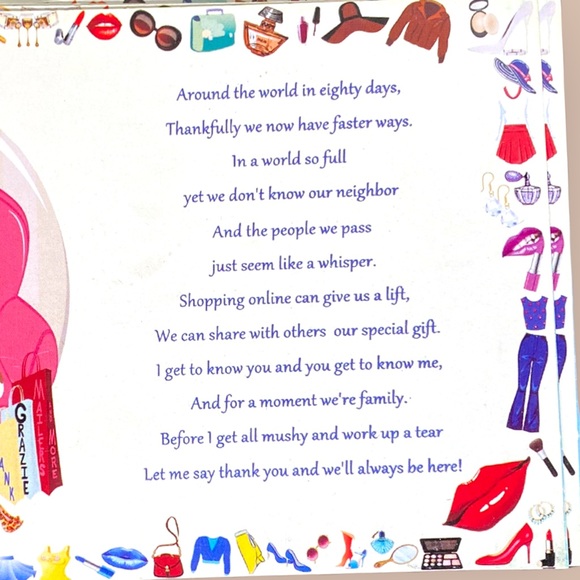 Around the world in eighty days,
Thankfully we now have faster ways.
In a world so full
yet we don't know our neighbor
And the people we pass
just seem like a whisper.
Shopping online can give us a lift,
We can share with others our special gift.
I get to know you and you get to know me,
And for a moment we're family.
Before I get all mushy and work up a tear
Let me say thank you and we'll always be here!
GRAZIE
MAILERS
MORE
ANK